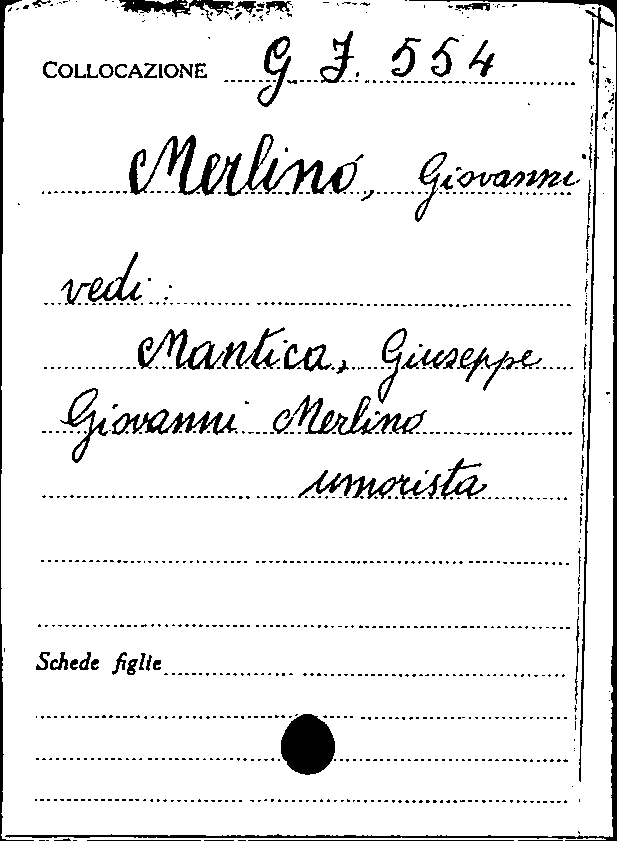 COLLOCAZIONE G J. 554
Merlino, Giovanni
vedi:
Mantica, Giuseppe
Giovanni Merlino
umorista
Schede figlie